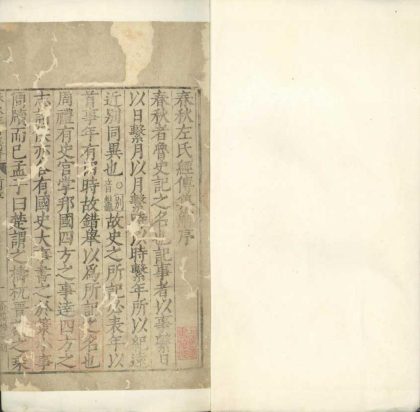 春秋左氏經傳集解序
春秋者魯史記之名也記事者以事繫日
以日繫月以月繫時以時繫年所以紀遠
近別同異也○別故史之所記必表年以
首事年有四時故錯舉以為所記之名也
周禮有史官掌邦國四方之事達四方之
志諸侯亦各有國史大事書之於策小事
簡牘而已孟子曰楚謂之檮杌晉謂之乘